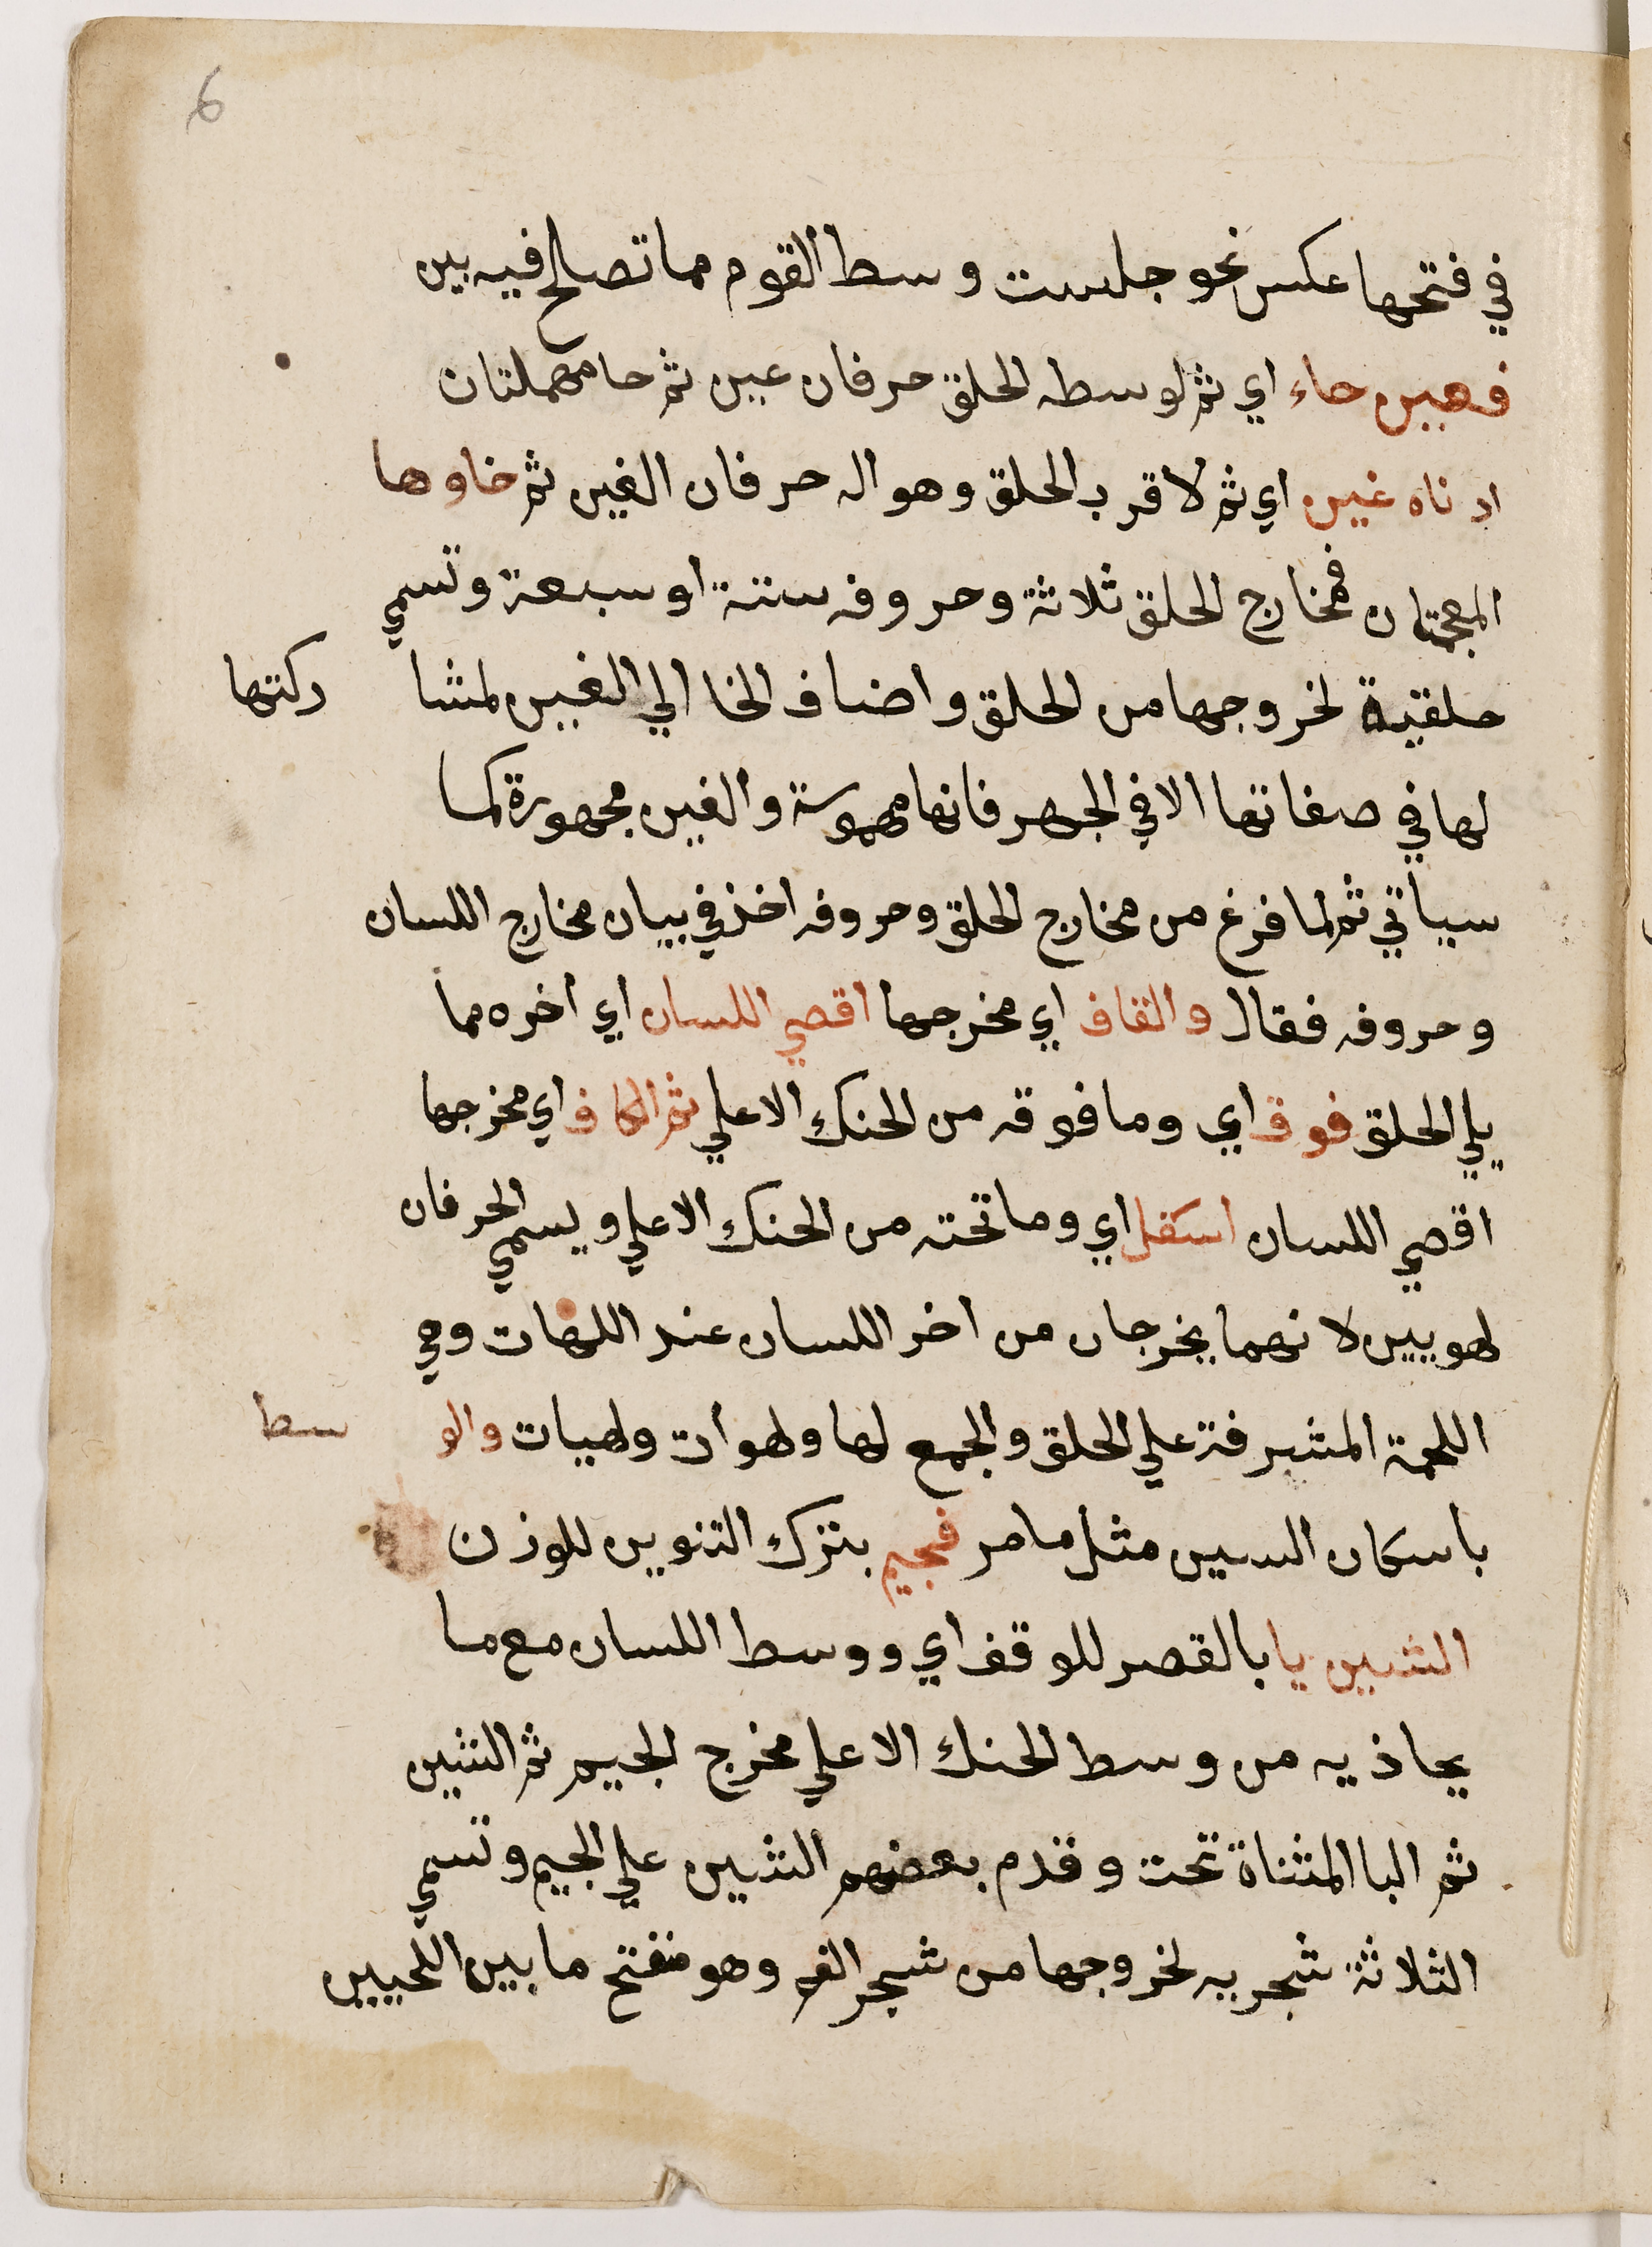 6
في فتحها عكس نحو جلست وسط القوم مما تصالح فيه بين
فعين حاء اي ثم لوسطه الحلق حرفان عين ثم حا مهملتان
ادناه غين اي ثم لاقرب الحلق وهو اله حرفان الغين ثم خاوها
المعجمتان فمخارج الحلق ثلاثة وحروفه ستة او سبعة وتسمي
حلقية لخروجها من الحلق واضاف الخا الي الغين لمشا ركتها
لها في صفاتها الا في الجهر فانها مهموسة والغين مجهورة كما
سياتي ثم لما فرغ من مخارج الحلق وحروفه اخذ في بيان مخارج اللسان
وحروفه فقال والقاف اي مخرجها اقصي اللسان اي اخره مما
يلي الحلق فوق اي وما فوقه من الحنك الاعلي ثم الكاف اي مخرجها
اقصي اللسان اسفل اي وما تحته من الحنك الاعلي ويسمي الحرفان
لهويين لانهما يخرجان من اخر اللسان عند اللهات وهي
اللحمة المشرفة علي الحلق والجمع لها ولهوات ولهيات والو سط
باسكان السين مثل ما مر فجيم بترك التنوين للوزن
الشين يا بالقصر للوقف اي ووسط اللسان مع ما
يحاذيه من وسط الحنك الاعلي مخرج الجيم ثم الشين
ثم اليا المثناة تحت وقدم بعضهم الشين علي الجيم وتسمي
الثلاثة شجريه لخروجها من شجر الفم وهو منفتح ما بين اللحيين